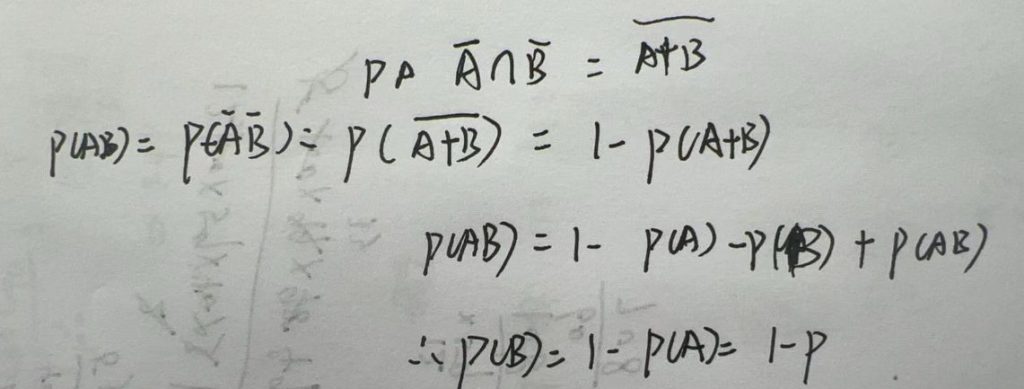 P A A̅∩B̅ = \overline{A+B}
P(AB) = P(A̅B̅) = P(\overline{A+B}) = 1 - P(A+B)
P(AB) = 1 - P(A) - P(B) + P(AB)
∴ P(B) = 1 - P(A) = 1 - P